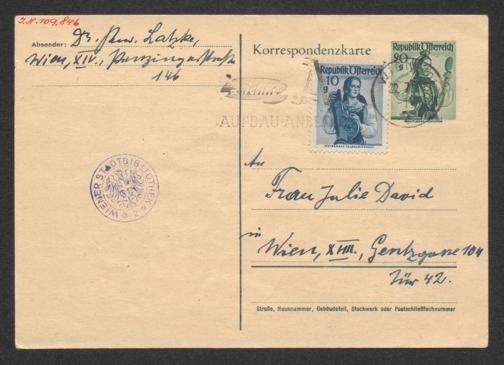 I.N. 109,846
Absender: Dr. Latzke,
Wien, XIV., Penzingerstraße
146
Korrespondenzkarte
Republik Österreich
20 g
Republik Österreich
10
g
AUFBAU-ANLEIHE
WIENER STADTBIBLIOTHEK
2
An
Frau Julie David
in
Wien, XVIII., Gentzgasse 104
Tür 42.
Straße, Hausnummer, Gebäudeteil, Stockwerk oder Postschließfachnummer